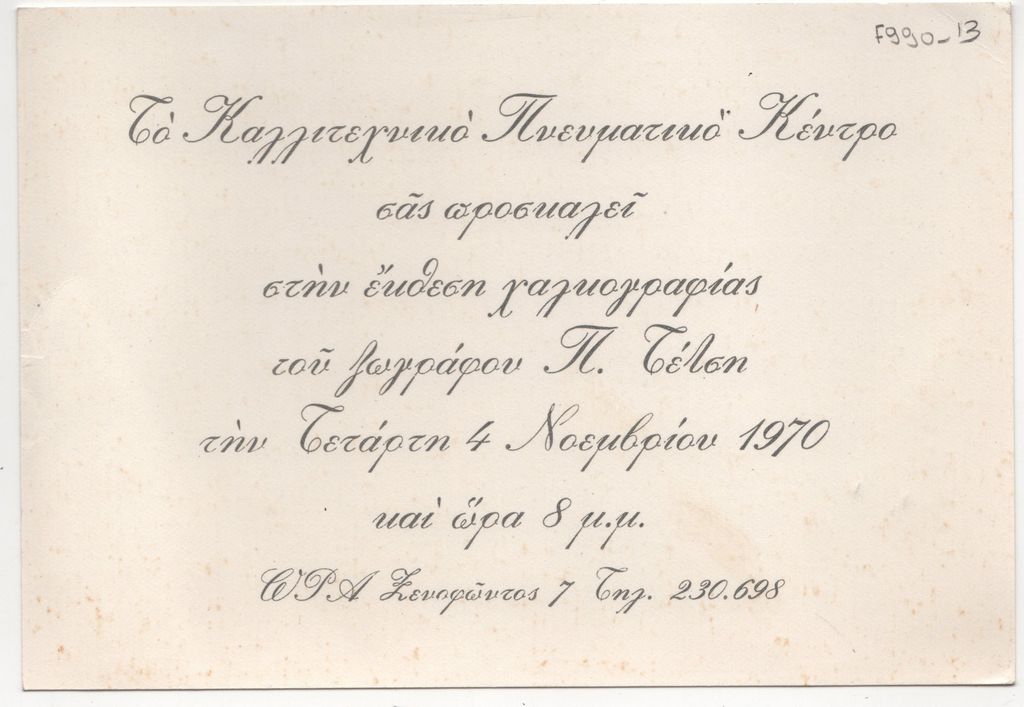 F990-13
Τὸ Καλλιτεχνικὸ Πνευματικὸ" Κέντρο
σᾶς προσκαλεῖ
στὴν ἔκθεση χαλκογραφίας
τοῦ ζωγράφου Π. Τέτση
τὴν Τετάρτη 4 Νοεμβρίου 1970
καὶ ὥρα 8 μ.μ.
ΩΡΑ Ξενοφῶντος 7 Τηλ. 230.698